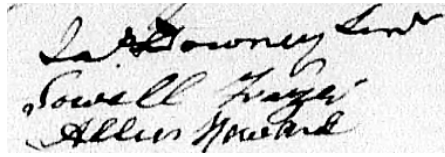 Jas Downey Senr
Sowell Frazer
Allen Howard